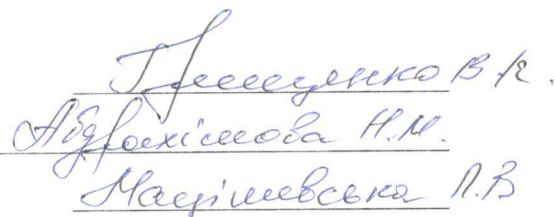 Грищенко В.К.
Абдрахімова Н.М.
Мацішевська Л.В